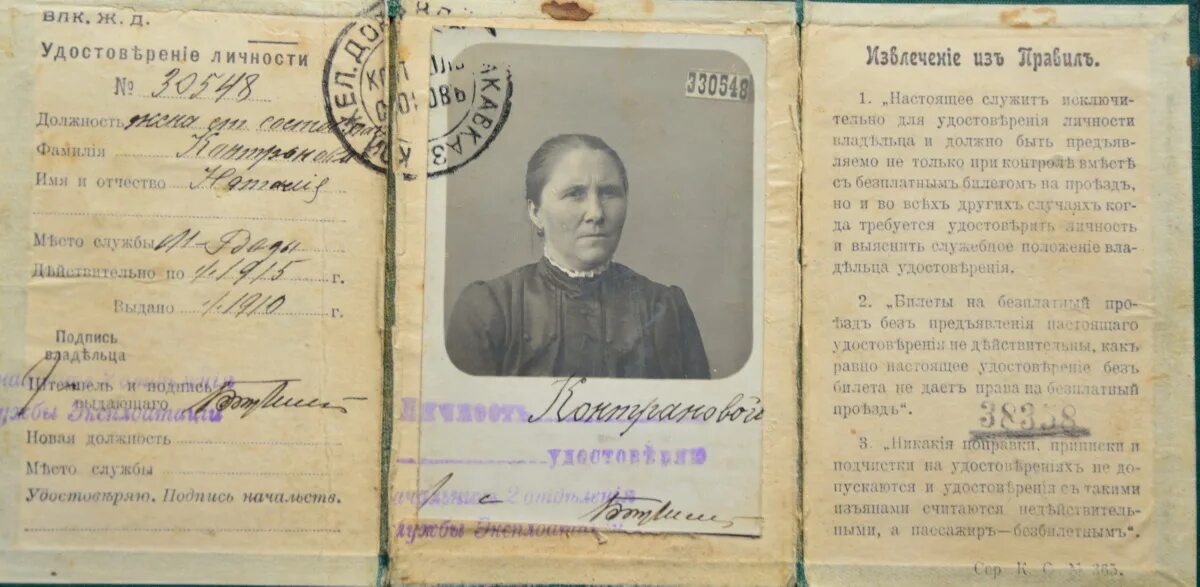 Влк. Ж. Д.
Удостовѣреніе личности
№ 30548
Должность жена ст. состав
Фамилія Контранова
Имя и отчество Наталія
Мѣсто службы М-Воды
Дѣйствительно по 1/I 1915 г.
Выдано 1/I 1910 г.
Подпись
владѣльца
Штемпель и подпись
выдающаго
службы Эксплоатаціи
Новая должность
Мѣсто службы
Удостовѣряю. Подпись начальств.
ЖЕЛ. ДОР.
КАВКАЗ
330548
Личность Контрановой
удостовѣряю
2 отдѣленія
службы Эксплоатаціи
Извлеченіе изъ Правилъ.
1. „Настоящее служитъ исключи-
тельно для удостовѣренія личности
владѣльца и должно быть предъяв-
ляемо не только при контролѣ вмѣстѣ
съ безплатнымъ билетомъ на проѣздъ,
но и во всѣхъ другихъ случаяхъ ког-
да требуется удостовѣрить личность
и выяснить служебное положеніе вла-
дѣльца удостовѣренія.
2. „Билеты на безплатный про-
ѣздъ безъ предъявленія настоящаго
удостовѣренія не дѣйствительны, какъ
равно настоящее удостовѣреніе безъ
билета не даетъ права на безплатный
проѣздъ“.
38358
3. „Никакія поправки, приписки и
подчистки на удостовѣреніяхъ не до-
пускаются и удостовѣренія съ такими
изъянами считаются недѣйствитель-
ными, а пассажиръ—безбилетнымъ“.
Сер. К. С. № 365.